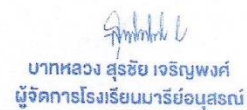 บาทหลวง สุรชัย เจริญพงศ์
ผู้จัดการโรงเรียนมารีย์อนุสรณ์